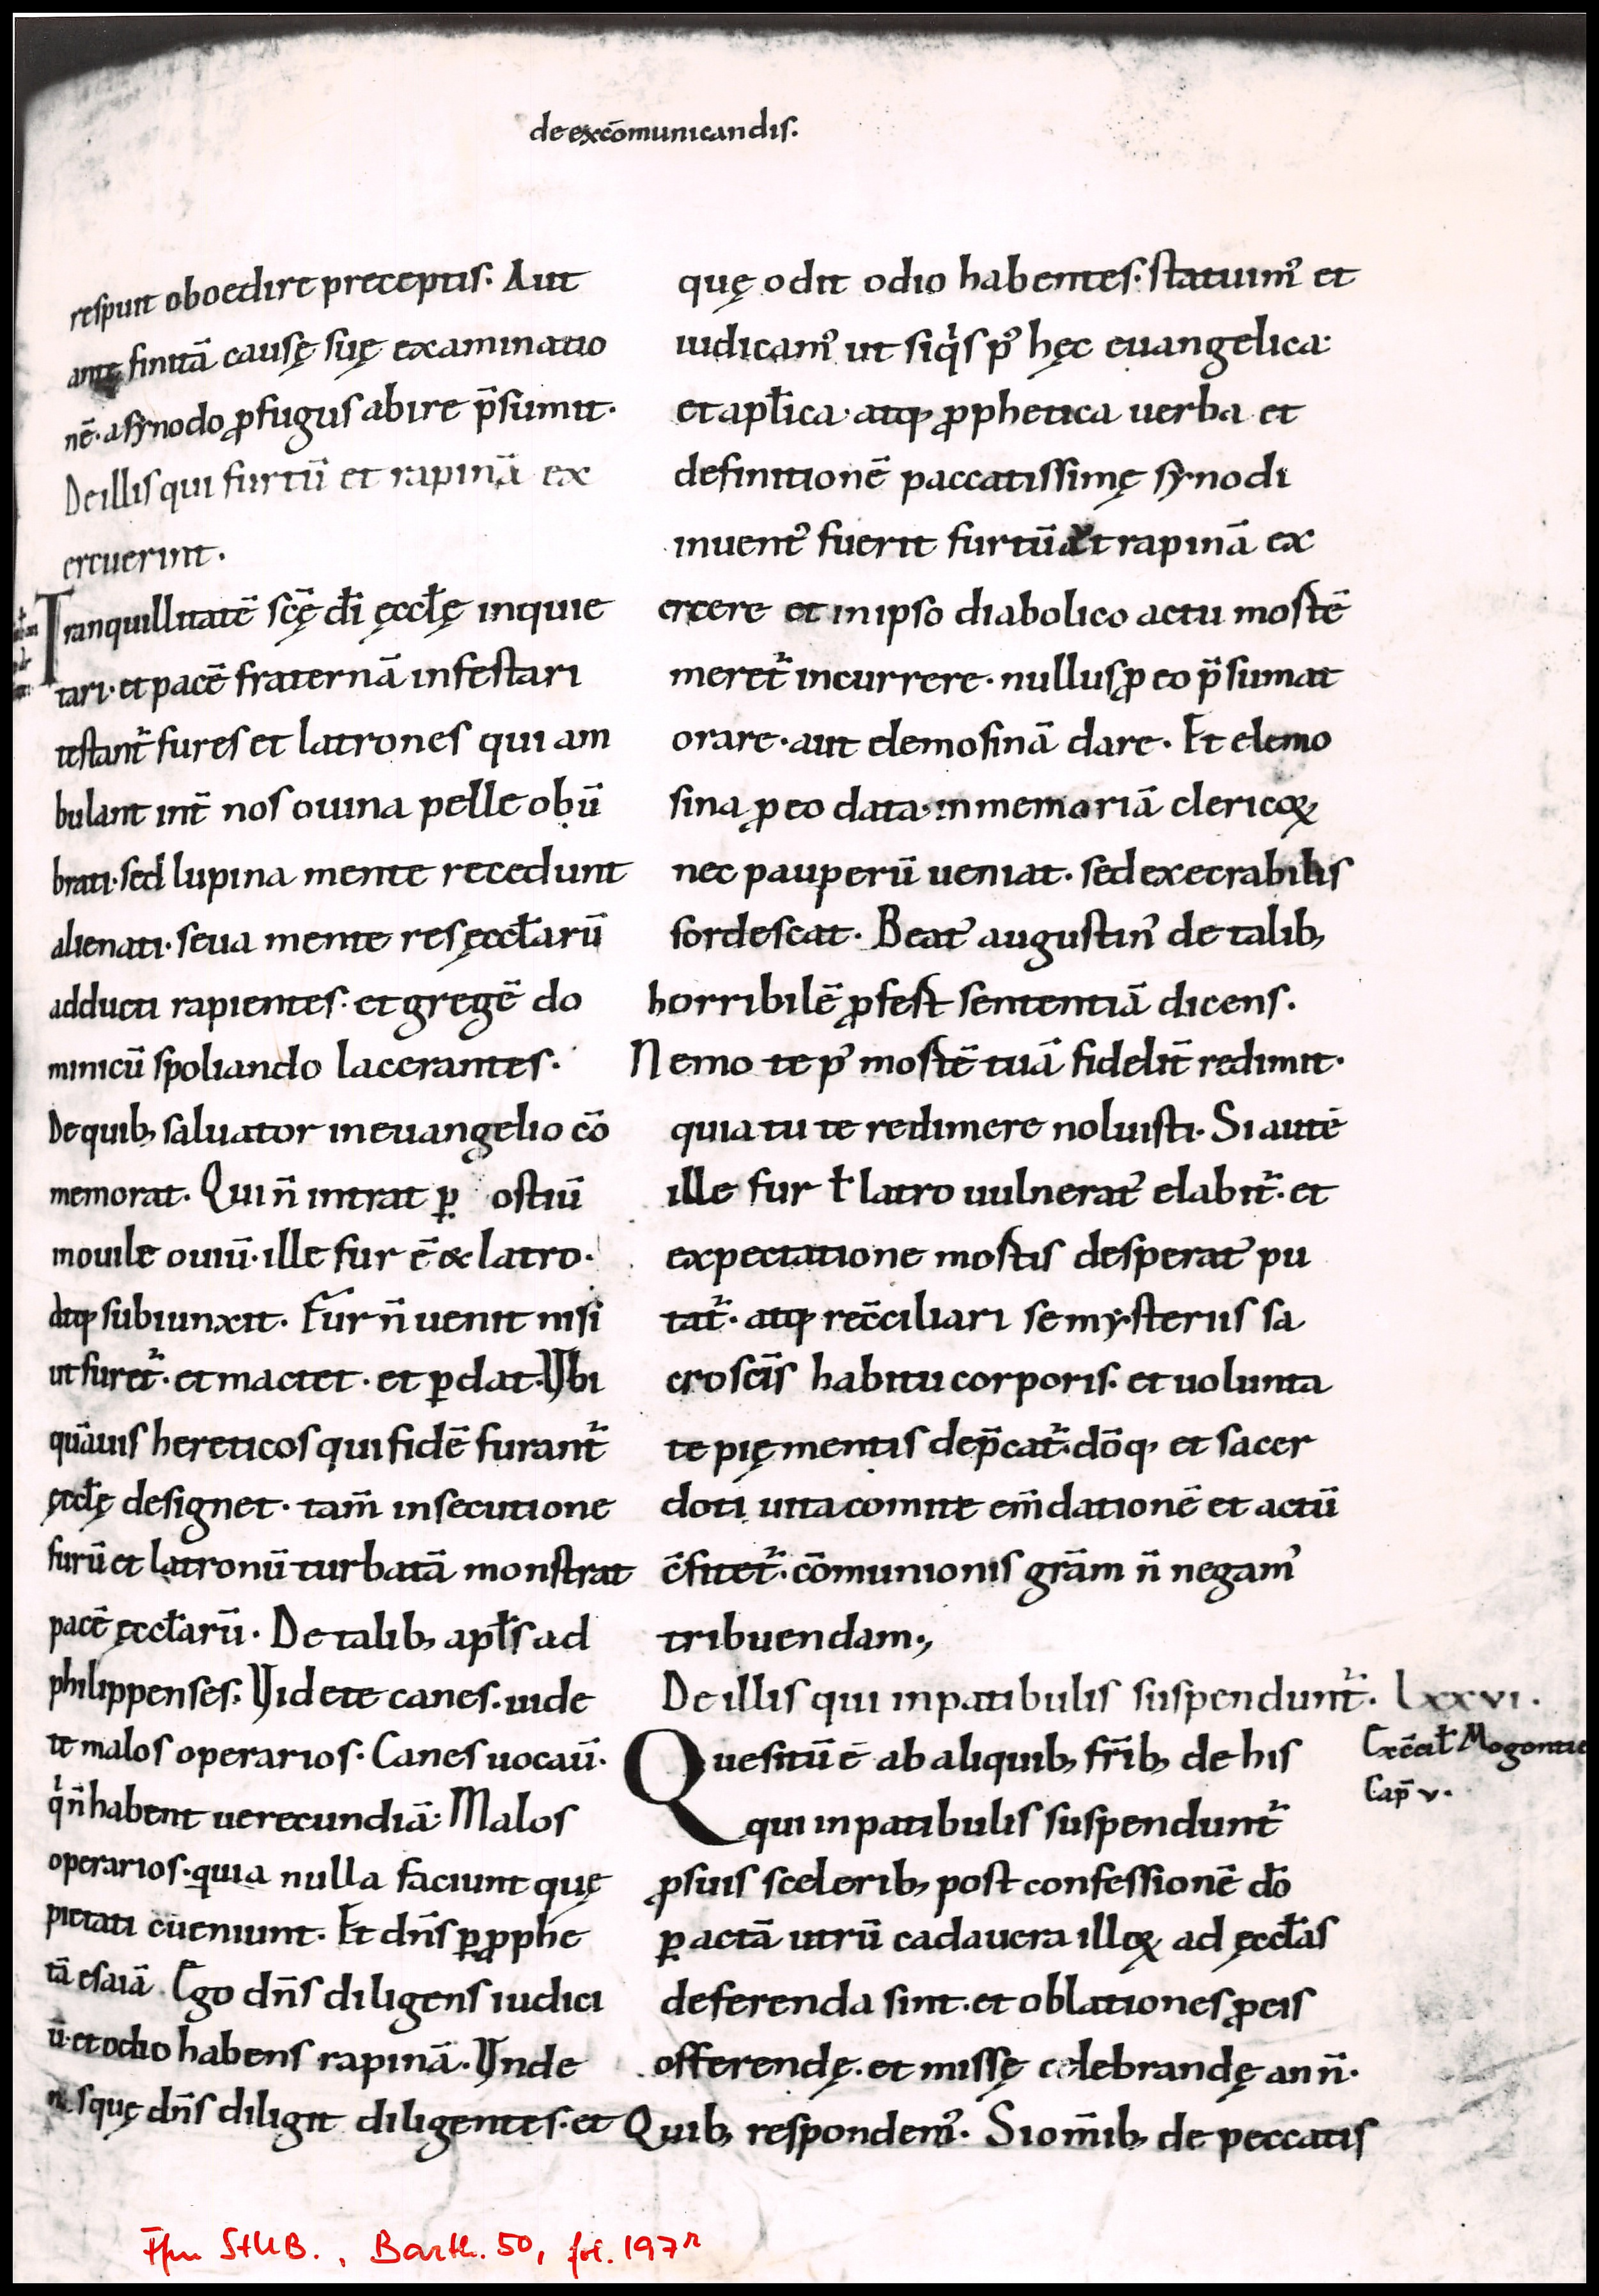 de excōmunicandis.
respuit oboedire preceptis. Aut
ante finitā causę suę examinatio
nē. a synodo ꝓfugus abire p̄sumit.
De illis qui furtū et rapinā ex
ercuerint.
Tranquillitatē scę̄ dī ęccłę inquie
tari. et pacē fraternā infestari
testant̄ fures et latrones qui am
bulant int̄ nos ouina pelle obū
brati. sed lupina mente recedunt
alienati. seua mente res ęccłarū
adducti rapientes. et gregē do
minicū spoliando lacerantes.
De quib; saluator in euangelio cō
memorat. Qui n̄ intrat ꝑ ostiū
in ouile ouiū. ille fur ē & latro.
atq; subiunxit. Fur n̄ uenit nisi
ut furet̄. et mactet. et ꝑdat. Vbi
quāuis hereticos qui fidē furant̄
ęccłę designet. tam̄ insecutione
furū et latronū turbatā monstrat
pacē ęccłarū. De talib; apłs ad
philippenses. Videte canes. uide
te malos operarios. Canes uocau̅.
qͥ n̄ habent uerecundiā. Malos
operarios. quia nulla faciunt quę
pietati cūeniunt. Et dn̄s ꝑ ꝓphe
tā esaiā. Ego dn̄s diligens iudici
ū. et odio habens rapinā. Vnde
nos quę dn̄s diligit diligentes. et
quę odit odio habentes. statuim᾿ et
iudicam᾿ ut siqͥs p᾿ hęc euangelica.
et apłica. atq; ꝓphetica uerba et
definitionē paccatissimę synodi
inuent᾿ fuerit furtū aut rapinā ex
ercere et in ipso diabolico actu mortē
meret̄ incurrere. nullus ꝓ eo p̄sumat
orare. aut elemosinā dare. Et elemo
sina ꝓ eo data. in memoriā clericoꝝ
nec pauperū ueniat. sed execrabilis
sordescat. Beat᾿ augustin᾿ de talib;
horribilē ꝓfert sententiā dicens.
Nemo te p᾿ mortē tuā fidelit̄ redimit.
quia tu te redimere noluisti. Si autē
ille fur ł latro uulnerat᾿ elabit̄. et
expectatione mortis desperat᾿ pu
tat̄. atq; rec̄ciliari se mysteriis sa
croscīs habitu corporis. et uolunta
te pię mentis dep̄cat̄. dōq; et sacer
doti uita comite em̄dationē et actū
c̄fitet̄. cōmunionis grām n̄ negam᾿
tribuendam.,
De illis qui in patibulis suspendunt̄. Lxxvi.
Quesitū ē ab aliquib; fr̄ib; de his
Ex c̄cił Mogontie
Cap̄ v.
qui in patibulis suspendunt̄
ꝓ suis scelerib; post confessionē dō
ꝑactā utrū cadauera illoꝝ ad ęccłas
deferenda sint. et oblationes ꝓ eis
offerendę. et missę celebrandę an n̄.
Quib; respondem᾿. Si om̄ib; de peccatis
Ffm StUB., Barth. 50, fol. 197r